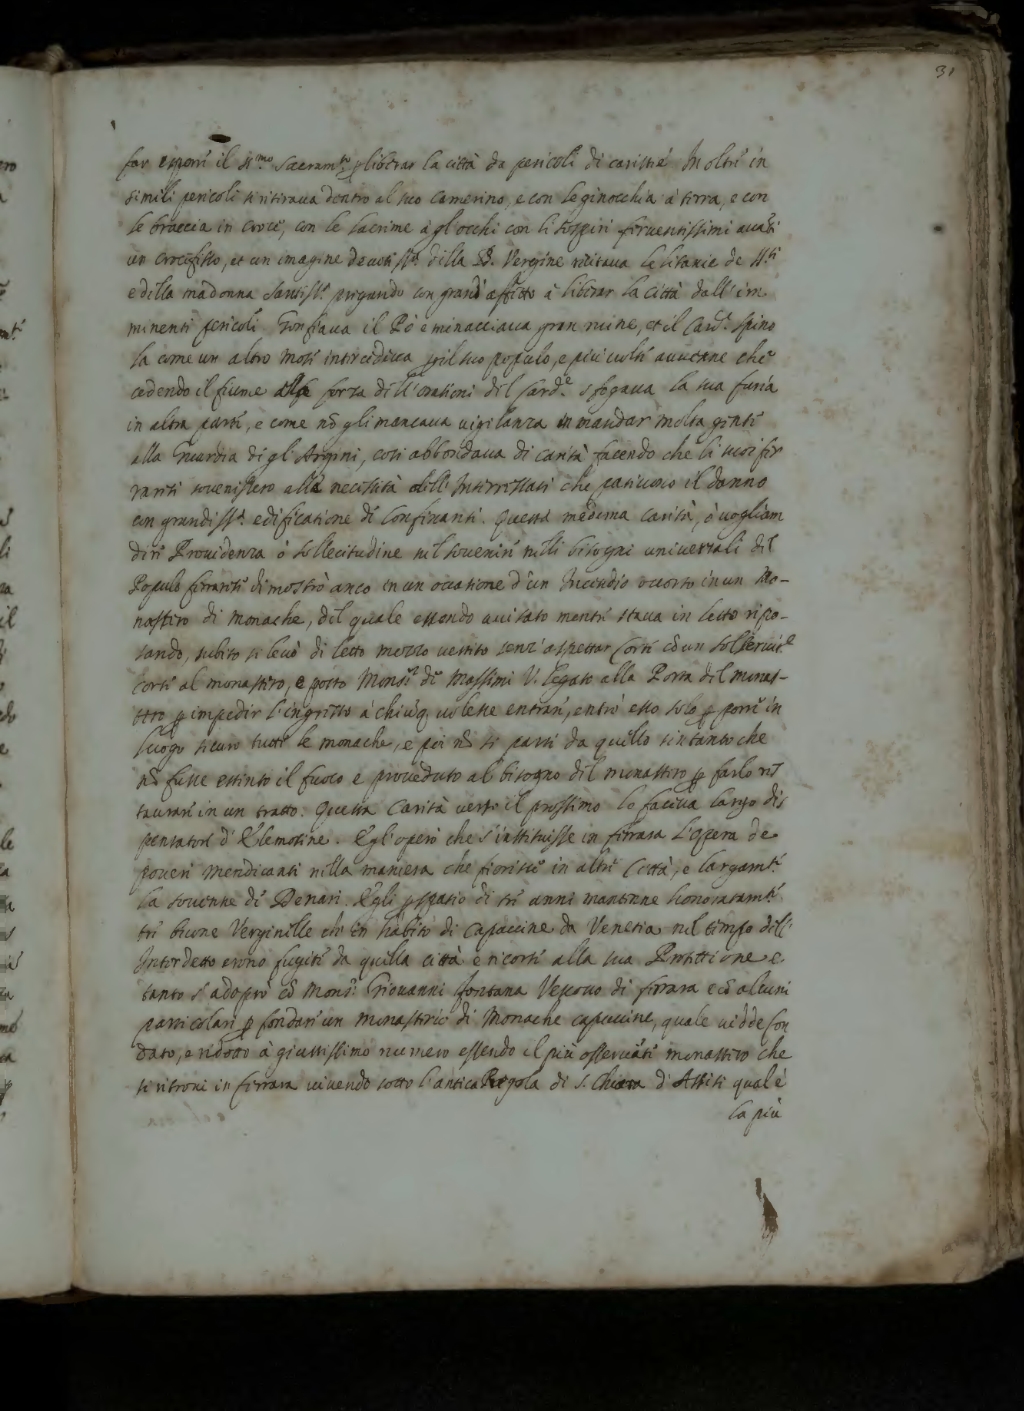 31
far esporre il S.mo Sacram.to p liberar la città da pericoli di carestie. In oltre in
simili pericoli si ritiraua dentro al suo camerino, e con le ginocchia à terra, e con
le braccia in croce, con le lacrime à gl'occhi con li sospiri feruentissimi auati
un crocefisso, et un imagine deuotiss.a della B. Vergine recitaua le litanie de S.ti
e della madonna santiss.a pregando con grand'affetto à liberar la Città dall'im
minenti pericoli. Gonfiaua il Pò e minacciaua gran ruine, et il Card.e Spino
la come un altro mosè intercedeua p il suo populo, e più uolte auuenne che
cedendo il fiume alla forza dell'orationi del Card.e sfogaua la sua furia
in altra parte, e come nõ gli mancaua uigilanza in mandar molta gente
alla Guardia degl'Argini, così abbondaua di carità facendo che li suoi fer
raresi souenissero alla necessità delli Interessati che patiuono il danno
con grandiss.a edificatione de Confinanti. Questa medema carità, ò uogliam
dire Prouidenza ò sollecitudine nel souenire nelli bisogni uniuersali del
Populo ferrarese dimostrò anco in un occasione d'un Incendio occorso in un Mo-
nastero di monache, del quale essendo auisato mentre staua in letto ripo-
sando, subito si leuò di letto mezzo uestito senz'aspettar Corte cõ un sol seruit.e
corse al monastero, e posto Mons.r de Massimi V. legato alla Porta del monas-
tero p impedir l'ingresso à chiuq, uolesse entrare, entrò esso solo p porre in
luogo sicuro tutte le monache, e poi nõ si partì da quello sintanto che
nõ fusse estinto il fuoco e proueduto al bisogno del monastero p farlo res
taurare in un tratto. Questa carità uerso il prossimo lo faceua largo dis
pensatore d'Elemosine. Egl'operò che s'instituisse in ferrara l'opera de
poueri mendicanti nella maniera che fiorisce in altre Città, e largam.te
la souenne de Denari. Egli p spatio di tre anni mantenne honoratam.te
tre buone Verginelle che in habito di capuccine da Venetia nel tempo dell'
Interdetto erono fugite da quella città e ricorse alla sua Protettione e
tanto s'adoprò cõ Mons.r Giouanni fontana Vescouo di ferrara e cõ alcuni
particolari p fondare un monasterio di Monache capuccine, quale uidde fon
dato, e ridotto à giustissimo numero essendo il più osseruãte monastero che
si ritroui in ferrara uiuendo sotto l'antica Regola di S. Chiara d'Assisi qual è
la più